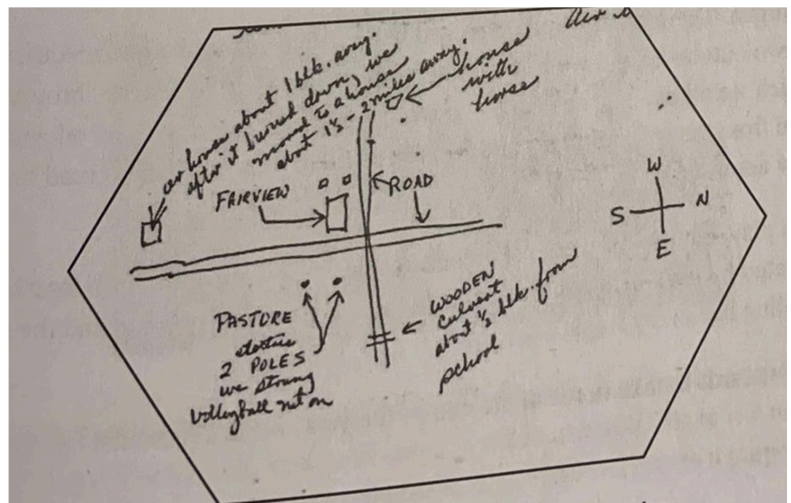 our house about 1 blk. away.
after it burned down, we
moved to a house
about 1½ - 2 miles away.
house
with
horse
FAIRVIEW
ROAD
W
S N
E
PASTURE
2 POLES
we strung
Volleyball net on
WOODEN
culvert
about ½ blk. from
school